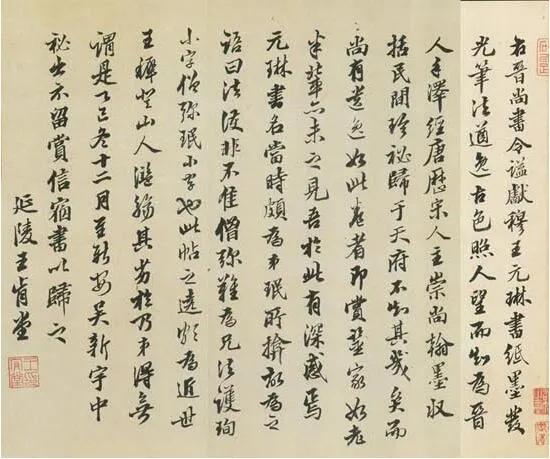 右晉尚書令謚獻穆王元琳書紙墨發
光筆法遒逸古色照人望而知為晉
人手澤經唐歷宋人主崇尚翰墨收
括民間珍秘歸于天府不知其幾矣而
尚有遺逸如此卷者即賞鑒家如老
米輩亦未之見吾於此有深感焉
元琳書名當時頗為弟珉所揜故為之
語曰法護非不佳僧彌難為兄法護珣
小字僧彌珉小字也此帖之為近世
王登山人其劣於乃弟得無
謂是乙巳冬十二月至新安吳新宇中
秘出示留賞信宿書以歸之
延陵王肯堂